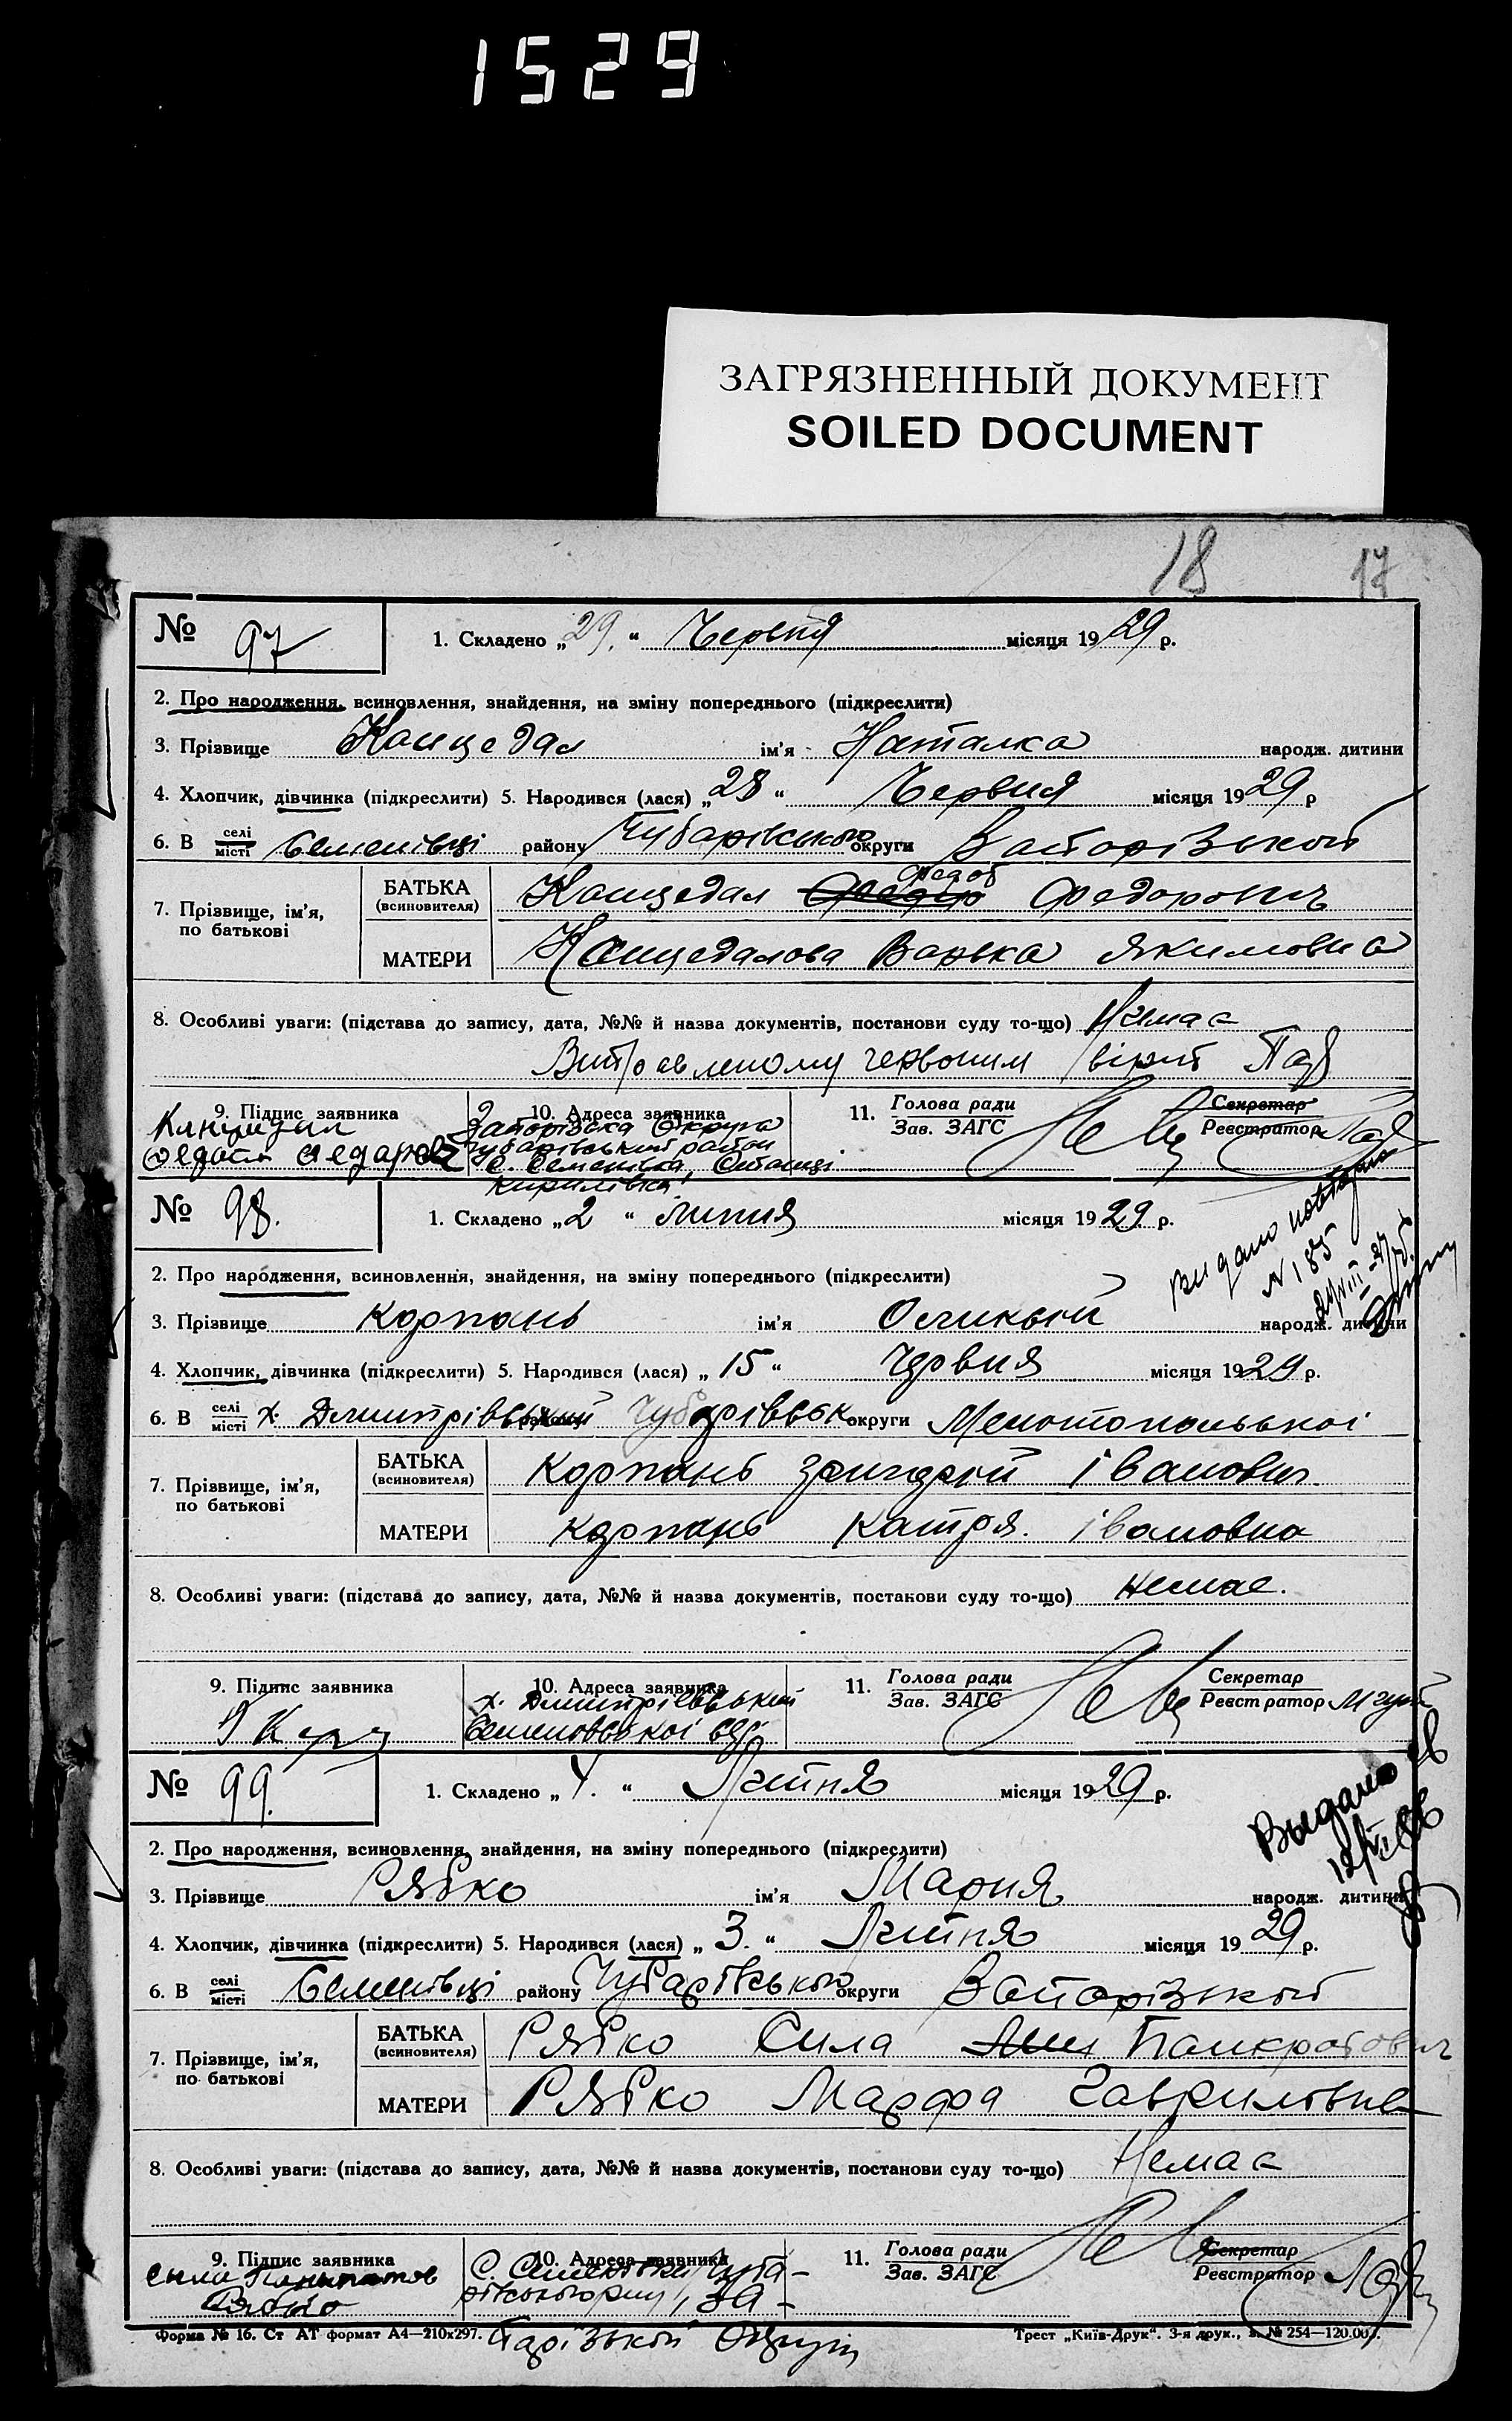 1529
ЗАГРЯЗНЕННЫЙ ДОКУМЕНТ
SOILED DOCUMENT
18 17
№ 97 1. Складено „29.“ Червня місяця 1929 р.
2. Про народження, всиновлення, знайдення, на зміну попереднього (підкреслити)
3. Прізвище Канцедал ім'я Наталка народж. дитини
4. Хлопчик, дівчинка (підкреслити) 5. Народився (лася) „28“ Червня місяця 1929 р
6. В селі місті Семенівці району Чубарівського округи Запорізької
7. Прізвище, ім'я, по батькові
БАТЬКА (всиновителя) Канцедал Федор Федот Федорович
МАТЕРИ Канцедалова Варька Якимовна
8. Особливі уваги: (підстава до запису, дата, №№ й назва документів, постанови суду то-що) Немає
Виправленому червоним вірить
9. Підпис заявника
10. Адреса заявника Запорізска Округа
Чубарівський район
с. Семенівка,
Кирилівка
11. Голова ради Зав. ЗАГС Секретар Реєстратор
№ 98. 1. Складено „2“ липня місяця 1929. р.
Видано повторно
№ 185
2. Про народження, всиновлення, знайдення, на зміну попереднього (підкреслити)
3. Прізвище Карпань ім'я народж. дитини
4. Хлопчик, дівчинка (підкреслити) 5. Народився (лася) „15“ Чрвня місяця 1929 р.
6. В селі місті х. Дмитрівський району Чубарівськ округи Мелотопольької
7. Прізвище, ім'я, по батькові
БАТЬКА (всиновителя) Карпань Іванович
МАТЕРИ Карпань Катря. Івановна
8. Особливі уваги: (підстава до запису, дата, №№ й назва документів, постанови суду то-що) Немає.
9. Підпис заявника
10. Адреса заявника х. Дмитрієвський
11. Голова ради Зав. ЗАГС Секретар Реєстратор
№ 99. 1. Складено „4.“ Липня місяця 1929 р.
Выдано
2. Про народження, всиновлення, знайдення, на зміну попереднього (підкреслити)
3. Прізвище Рябко ім'я Мария народж. дитини
4. Хлопчик, дівчинка (підкреслити) 5. Народився (лася) „3.“ Липня місяця 1929 р.
6. В селі місті Семенівці району Чубарівського округи Запорізької
7. Прізвище, ім'я, по батькові
БАТЬКА (всиновителя) Рябко Сила Панкратович
МАТЕРИ Рябко Марфа Гавриловна
8. Особливі уваги: (підстава до запису, дата, №№ й назва документів, постанови суду то-що) Немає
9. Підпис заявника
Рябко
10. Адреса заявника С. Семенівки Чуба-
рівського рну, За-
парізької Округи
11. Голова ради Зав. ЗАГС Секретар Реєстратор
Форма № 16. Ст АТ формат А4—210х297. Трест „Київ-Друк“. 3-я друк., з. № 254—120.000.